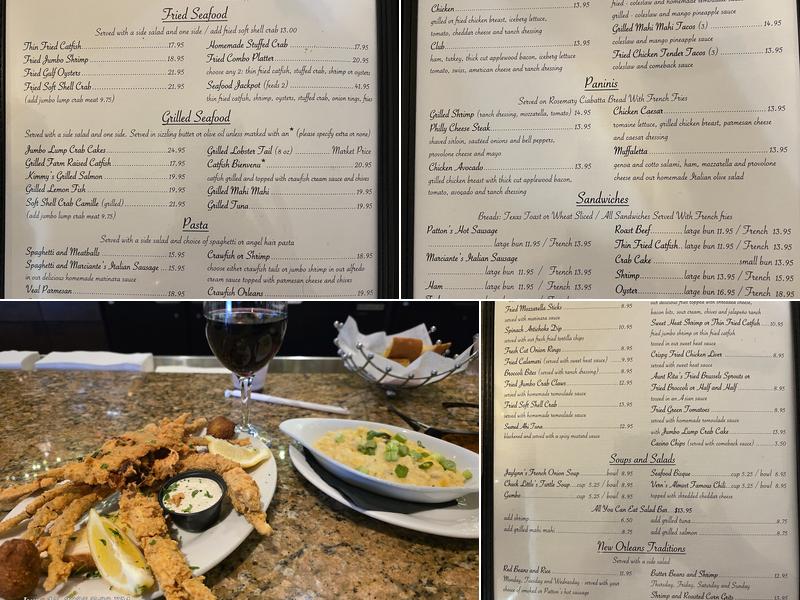 Fried Seafood
Served with a side salad and one side / add fried soft shell crab 13.00
Thin Fried Catfish 17.95
Fried Jumbo Shrimp 18.95
Fried Gulf Oysters 21.95
Fried Soft Shell Crab 21.95
(add jumbo lump crab meat 9.75)
Homemade Stuffed Crab 17.95
Fried Combo Platter 20.95
choose any 2: thin fried catfish, stuffed crab, shrimp or oysters
Seafood Jackpot (feeds 2) 41.95
thin fried catfish, shrimp, oysters, stuffed crab, onion rings, fries
Grilled Seafood
Served with a side salad and one side. Served in sizzling butter or olive oil unless marked with an* (please specify extra in one)
Jumbo Lump Crab Cakes 24.95
Grilled Farm Raised Catfish 17.95
Kimmy's Grilled Salmon 19.95
Grilled Lemon Fish 19.95
Soft Shell Crab Camille (grilled) 21.95
(add jumbo lump crab meat 9.75)
Grilled Lobster Tail (8 oz) Market Price
Catfish Bienvenu* 20.95
catfish grilled and topped with crawfish cream sauce and chives
Grilled Mahi Mahi 19.95
Grilled Tuna 19.95
Pasta
Served with a side salad and choice of spaghetti or angel hair pasta
Spaghetti and Meatballs 15.95
Spaghetti and Marciante's Italian Sausage 15.95
in our delicious homemade marinara sauce
Veal Parmesan 18.95
Crawfish or Shrimp 18.95
choose either crawfish tails or jumbo shrimp in our alfredo
cream sauce topped with parmesan cheese and chives
Crawfish Orleans 19.95
Chicken 13.95
grilled or fried chicken breast, iceberg lettuce,
tomato, cheddar cheese and ranch dressing
Club 13.95
ham, turkey, thick cut applewood bacon, iceberg lettuce
tomato, swiss, american cheese and ranch dressing
grilled - coleslaw and mango pineapple sauce
Grilled Mahi Mahi Tacos (3) 14.95
coleslaw and mango pineapple sauce
Fried Chicken Tender Tacos (3) 13.95
coleslaw and comeback sauce
Paninis
Served on Rosemary Ciabatta Bread With French Fries
Grilled Shrimp (ranch dressing, mozzarella, tomato) 14.95
Philly Cheese Steak 13.95
shaved sirloin, sautéed onions and bell peppers,
provolone cheese and mayo
Chicken Avocado 13.95
grilled chicken breast with thick cut applewood bacon,
tomato, avocado and ranch dressing
Chicken Caesar 13.95
romaine lettuce, grilled chicken breast, parmesan cheese
and caesar dressing
Muffaletta 13.95
genoa and cotto salami, ham, mozzarella and provolone
cheese and our homemade Italian olive salad
Sandwiches
Breads: Texas Toast or Wheat Sliced / All Sandwiches Served With French fries
Patton's Hot Sausage
large bun 11.95 / French 13.95
Marciante's Italian Sausage
large bun 11.95 / French 13.95
Ham large bun 11.95 / French 13.95
Roast Beef large bun 11.95 / French 13.95
Thin Fried Catfish large bun 11.95 / French 13.95
Crab Cake small bun 13.95
Shrimp large bun 13.95 / French 15.95
Oyster large bun 16.95 / French 18.95
Fried Mozzarella Sticks 8.95
served with marinara sauce
Spinach Artichoke Dip 10.95
served with our fresh fried tortilla chips
Fresh Cut Onion Rings 8.95
Fried Calamari (served with sweet heat sauce) 9.95
Broccoli Bites (served with ranch dressing) 8.95
Fried Jumbo Crab Claws 12.95
served with homemade remoulade sauce
Fried Soft Shell Crab 13.95
served with homemade remoulade sauce
Seared Ahi Tuna 12.95
blackened and served with a spicy mustard sauce
bacon bits, sour cream, chives and jalapeño ranch
Sweet Heat Shrimp or Thin Fried Catfish 10.95
fried jumbo shrimp or thin fried catfish
tossed in our sweet heat sauce
Crispy Fried Chicken Liver 8.95
served with sweet heat sauce
Aunt Rita's Fried Brussels Sprouts or
Fried Broccoli or Half and Half 8.95
tossed in an Asian sauce
Fried Green Tomatoes 8.95
served with homemade remoulade sauce
with Jumbo Lump Crab Cake 13.95
Casino Chips (served with comeback sauce) 3.50
Soups and Salads
Jaylynn's French Onion Soup bowl 8.95
Chuck Little's Turtle Soup cup 5.25 / bowl 8.95
Gumbo cup 5.25 / bowl 8.95
Seafood Bisque cup 5.25 / bowl 8.95
Vern's Almost Famous Chili cup 5.25 / bowl 8.95
topped with shredded cheddar cheese
All You Can Eat Salad Bar $13.95
add shrimp 6.50
add grilled mahi mahi 8.75
add grilled tuna 8.75
add grilled salmon 8.75
New Orleans Traditions
Served with a side salad
Red Beans and Rice 11.95
Monday, Tuesday and Wednesday - served with your
choice of smoked or Patton's hot sausage
Butter Beans and Shrimp 12.95
Thursday, Friday, Saturday and Sunday
Shrimp and Roasted Corn Grits 13.95